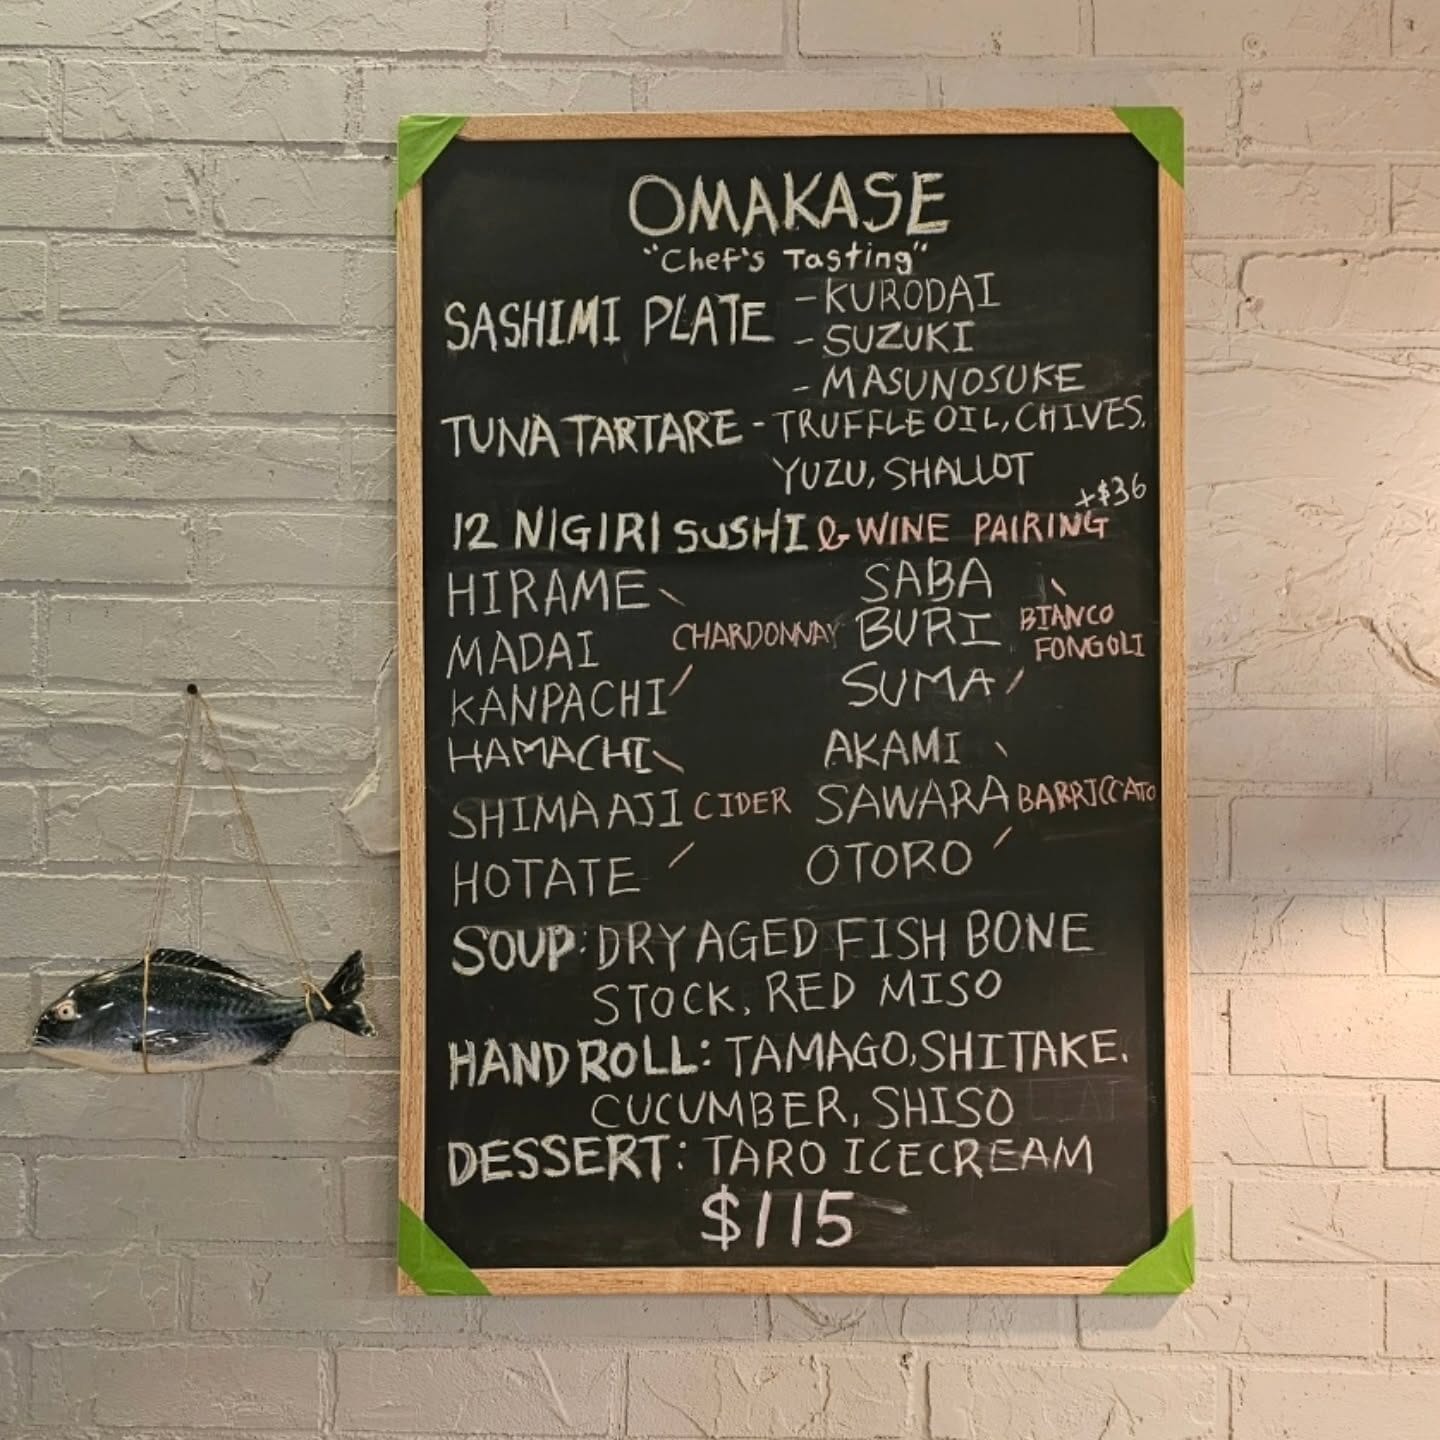 OMAKASE
"Chef's Tasting"
SASHIMI PLATE - KURODAI
- SUZUKI
- MASUNOSUKE
TUNA TARTARE - TRUFFLE OIL, CHIVES.
YUZU, SHALLOT
+$36
12 NIGIRI SUSHI & WINE PAIRING
HIRAME
MADAI CHARDONNAY
KANPACHI
HAMACHI
SHIMA AJI CIDER
HOTATE
SABA
BURI BIANCO
FONGOLI
SUMA
AKAMI
SAWARA BARRICCATO
OTORO
SOUP: DRY AGED FISH BONE
STOCK, RED MISO
HAND ROLL: TAMAGO, SHITAKE.
CUCUMBER, SHISO
DESSERT: TARO ICECREAM
$115